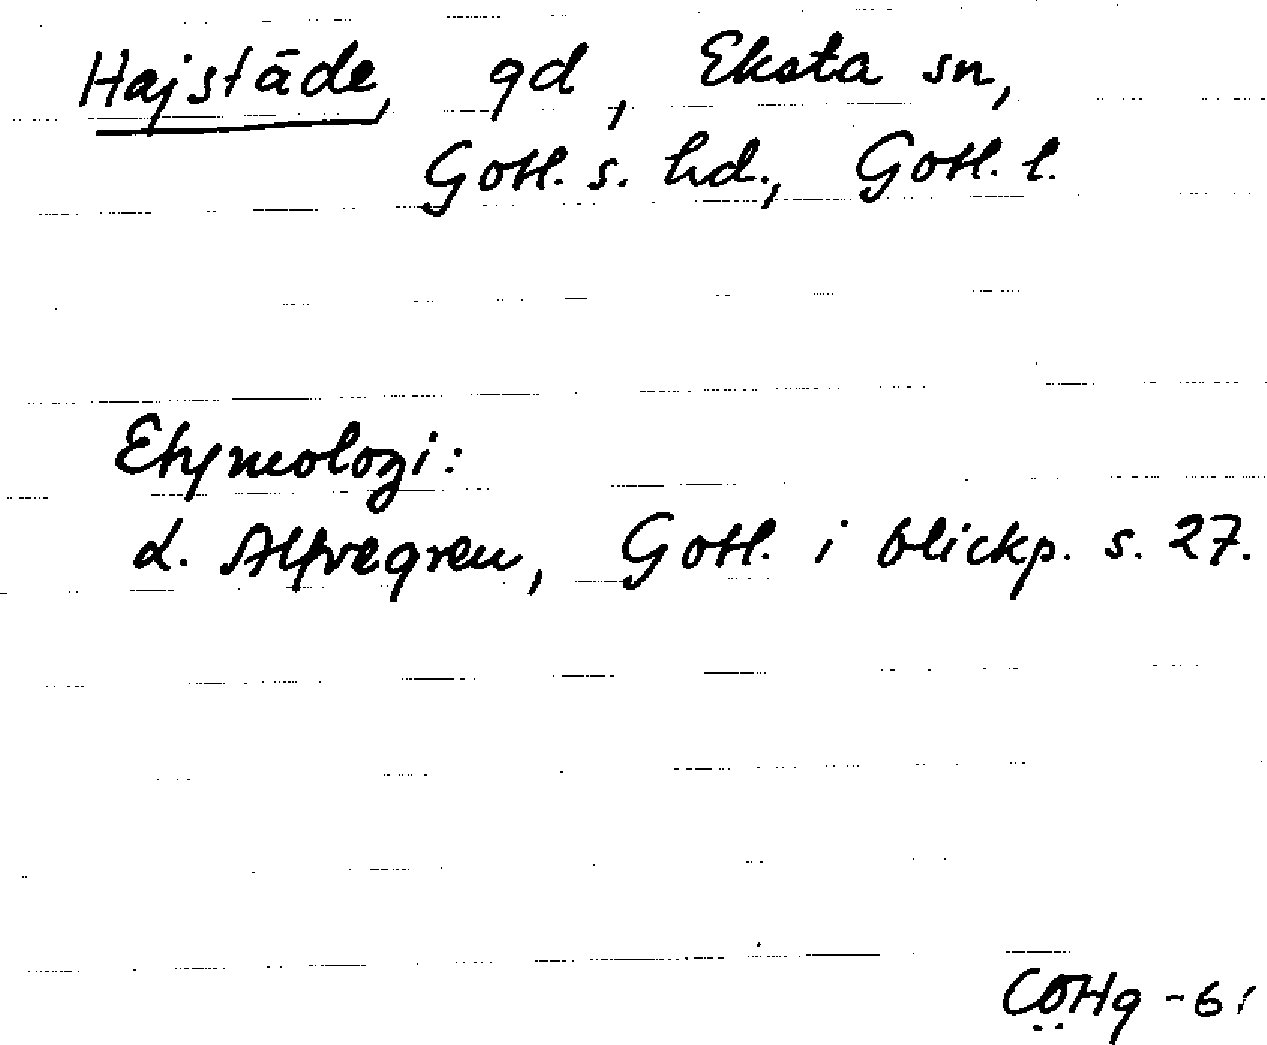 Hajstäde, gd, Eksta sn,
Gotl. s. hd., Gotl. l.
Etymologi:
L. Alfvegren, Gotl. i blickp. s. 27.
CÖHg -61